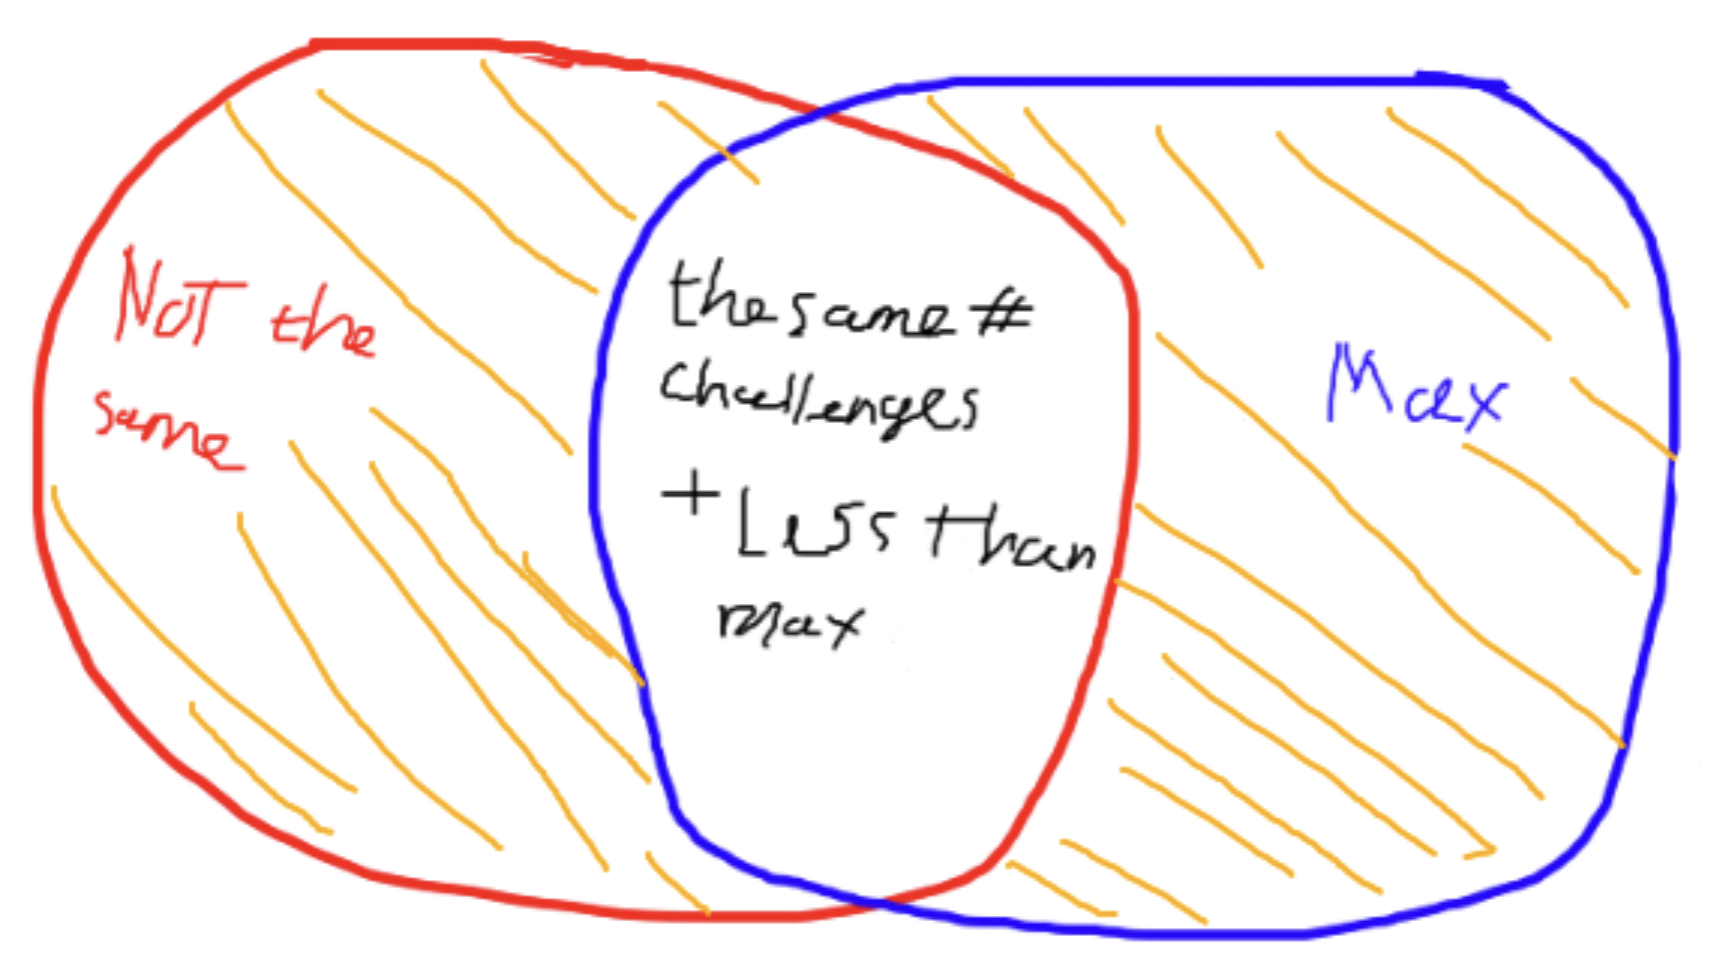 NOT the
same
the same #
challenges
+ Less than
max
Max